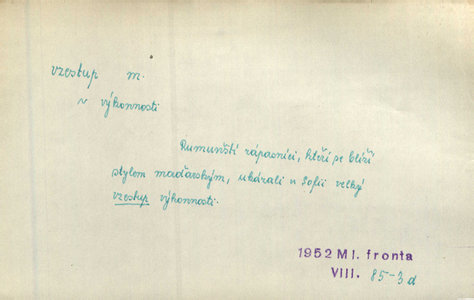 vzestup m.
v výkonnosti
Rumunští zápasníci, kteří se blíží
stylem maďarským, ukázali v Sofii velký
vzestup výkonnosti.
1952 Ml. fronta
VIII. 85-3d